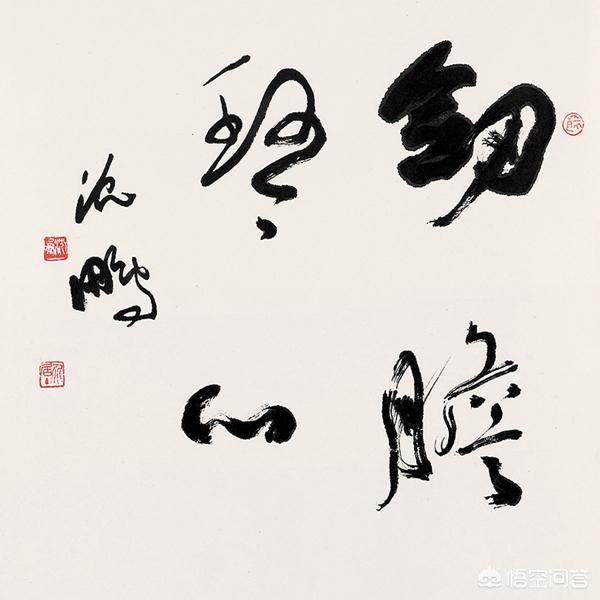 剑胆
琴心
沈鹏
悟空问答